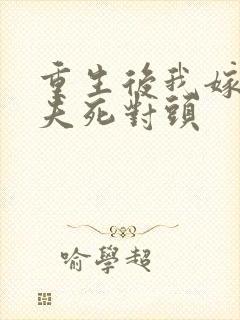 重生後我嫁
夫死對頭
喻學超